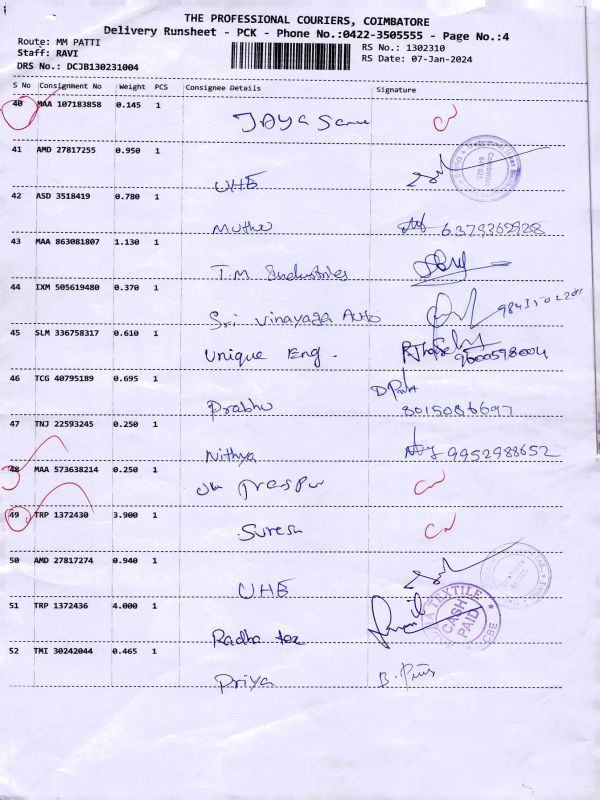 THE PROFESSIONAL COURIERS, COIMBATORE
Delivery Runsheet - PCK - Phone No.:0422-3505555 - Page No.:4
Route: MM PATTI
RS No.: 1302310
Staff: RAVI
RS Date: 07-Jan-2024
DRS No.: DCJB130231004
S No Consignment No Weight PCS Consignee Details Signature
40 MAA 107183858 0.145 1
JAYA
41 AMD 27817255 0.950 1
UHE
42 ASD 3518419 0.780 1
Muthu 6379362928
43 MAA 863081807 1.130 1
T.M Industries
44 IXM 505619480 0.370 1
Sri Vinayaga Auto
45 SLM 336758317 0.610 1
Unique Eng. 9600598004
46 TCG 40795189 0.695 1
Prabhu 8015086697
47 TNJ 22593245 0.250 1
Nithya 9952988652
48 MAA 573638214 0.250 1
49 TRP 1372430 3.900 1
Suresh
50 AMD 27817274 0.940 1
UHE
51 TRP 1372436 4.000 1
TEXTILE
CASH
PAID
CBE
Radha tex
52 TMI 30242044 0.465 1
Priya